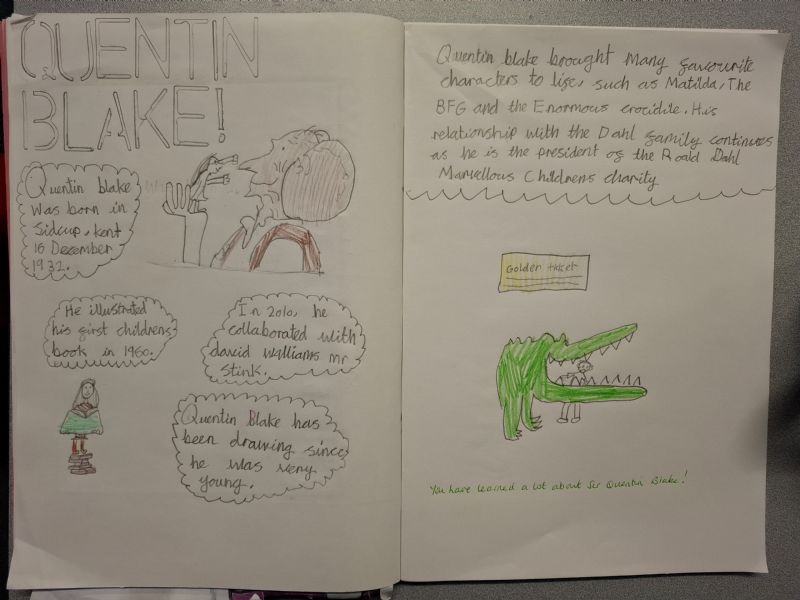 QUENTIN
BLAKE!
Quentin blake
was born in
Sidcup, kent
16 December
1932.
He illustrated
his first childrens
book in 1960.
In 2010, he
collaborated with
david walliams mr
Stink.
Quentin Blake has
been drawing since
he was very
young.
Quentin blake brought many favourite
characters to life, such as Matilda, The
BFG and the Enormous crocidile. His
relationship with the Dahl family continues
as he is the president of the Roald Dahl
Marvellous Childrens charity
Golden ticket
You have learned a lot about Sir Quentin Blake!